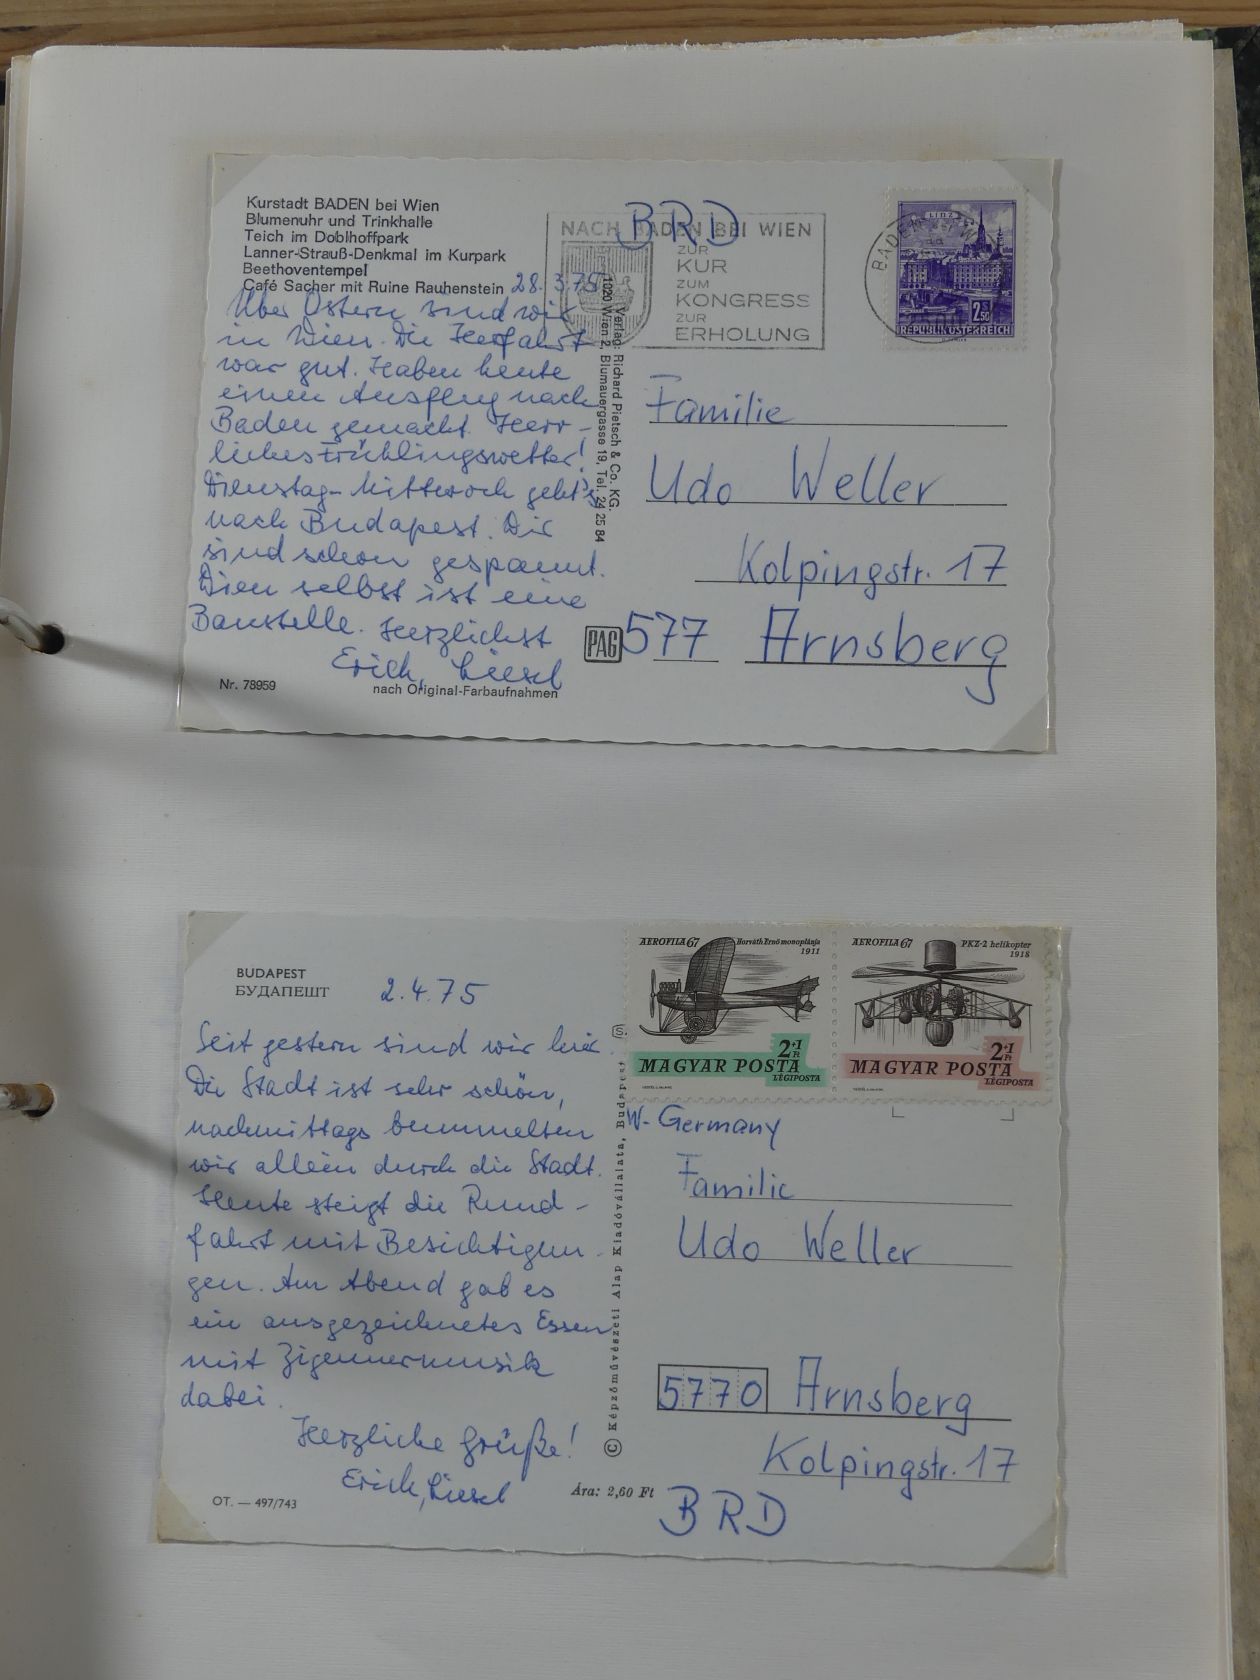 Kurstadt BADEN bei Wien
Blumenuhr und Trinkhalle
Teich im Doblhoffpark
Lanner-Strauß-Denkmal im Kurpark
Beethoventempel
Café Sacher mit Ruine Rauhenstein
28.3.75
Über Ostern sind wir
in Wien. Die Herfahrt
war gut. Haben heute
einen Ausflug nach
Baden gemacht. Herr-
liches Frühlingswetter!
Dienstag-Mittwoch geht's
nach Budapest. Wir
sind schon gespannt.
Wien selbst ist eine
Baustelle. Herzlichst
Erich, Liesel
Nr. 78959
nach Original-Farbaufnahmen
Verlag: Richard Pietsch & Co. KG.
1020 Wien 2, Blumauergasse 19, Tel. 24 25 84
PAG
BRD
NACH BADEN BEI WIEN
ZUR
KUR
ZUM
KONGRESS
ZUR
ERHOLUNG
BADEN
LINZ
2S50
REPUBLIK ÖSTERREICH
Familie
Udo Weller
Kolpingstr. 17
577 Arnsberg
BUDAPEST
БУДАПЕШТ
2.4.75
Seit gestern sind wir hier.
Die Stadt ist sehr schön,
nachmittags bummelten
wir allein durch die Stadt.
Heute steigt die Rund-
fahrt mit Besichtigun-
gen. Am Abend gab es
ein ausgezeichnetes Essen
mit Zigeunermusik
dabei.
Herzliche Grüße!
Erich, Liesel
OT. — 497/743
Ára: 2,60 Ft
© Képzőművészeti Alap Kiadóvállalata, Budapest
AEROFILA 67
Horváth Ernő monoplánja
1911
2+1
Ft
MAGYAR POSTA
LÉGIPOSTA
AEROFILA 67
PKZ-2 helikopter
1918
2+1
Ft
MAGYAR POSTA
LÉGIPOSTA
W-Germany
Familie
Udo Weller
5770 Arnsberg
Kolpingstr. 17
BRD